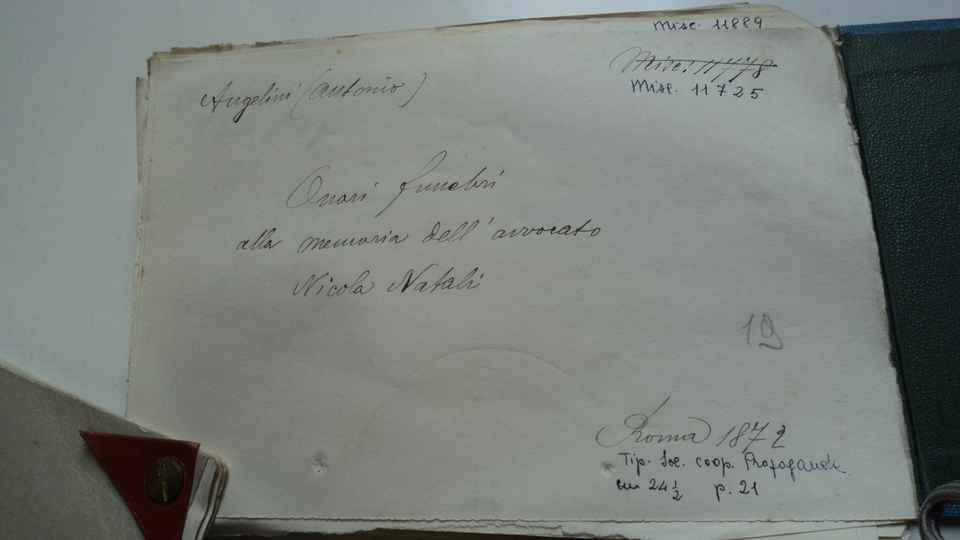 Misc. 11889
Misc. 11778
Misc. 11725
Angelini (Antonio)
Onori funebri
alla memoria dell'avvocato
Nicola Natali
19
Roma 1872
Tip. Soc. coop. Propagande
cm 24 1/2 p. 21